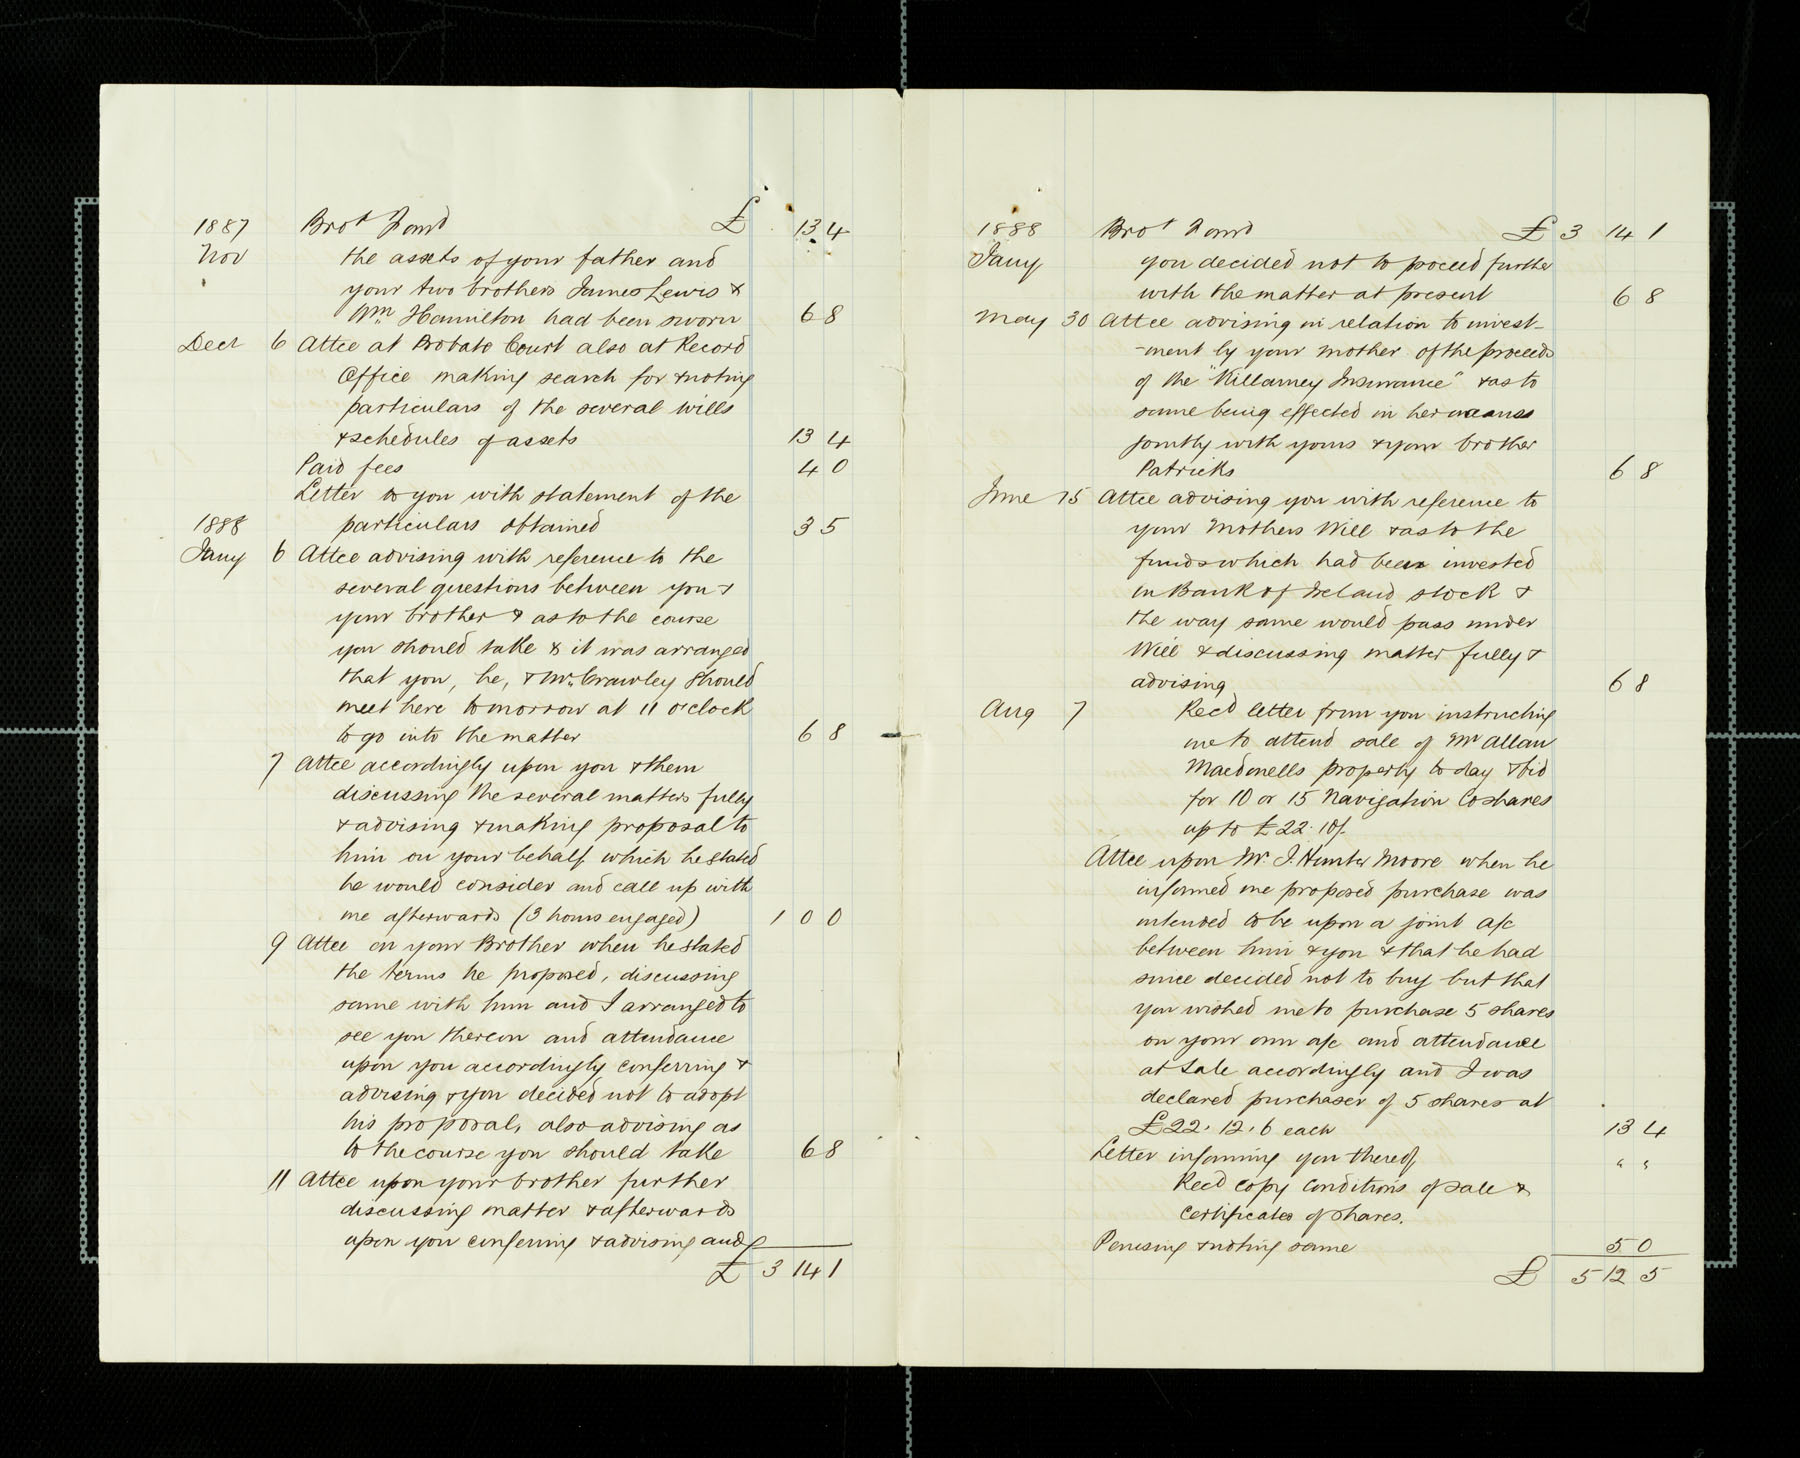 1887 Brot Forwd £ 13 4
Nov the assets of your father and
your two brothers James Lewis &
Wm Hamilton had been sworn 6 8
Decr 6 Attce at Probate Court also at Record
Office making search for & noting
particulars of the several wills
& schedules of assets 13 4
Paid fees 4 0
Letter to you with statement of the
particulars obtained 3 5
1888
Jany 6 Attce advising with reference to the
several questions between you &
your brother & as to the course
you should take & it was arranged
that you, he, & Mr. Crawley should
meet here tomorrow at 11 o'clock
to go into the matter 6 8
7 Attce accordingly upon you & them
discussing the several matters fully
& advising & making proposal to
him on your behalf which he stated
he would consider and call up with
me afterwards (3 hours engaged) 1 0 0
9 Attce on your Brother when he stated
the terms he proposed, discussing
same with him and I arranged to
see you thereon and attendance
upon you accordingly conferring &
advising & you decided not to adopt
his proposal, also advising as
to the course you should take 6 8
11 Attce upon your brother further
discussing matter & afterwards
upon you conferring & advising and
£ 3 14 1
1888 Brot Forwd £ 3 14 1
Jany you decided not to proceed further
with the matter at present 6 8
May 30 Attce advising in relation to invest-
-ment by your mother of the proceeds
of the "Killarney Insurance" & as to
same being effected in her
jointly with yours & your brother
Patricks 6 8
June 15 Attce advising you with reference to
your Mothers Will & as to the
funds which had been invested
in Bank of Ireland stock &
the way same would pass under
Will & discussing matter fully &
advising 6 8
Aug 7 Recd letter from you instructing
me to attend sale of Mr Allan
Macdonells property to day & bid
for 10 or 15 Navigation Co shares
up to £22. 10/.
Attce upon Mr. J. Hunter Moore when he
informed me proposed purchase was
intended to be upon a joint a/c
between him & you & that he had
since decided not to buy but that
you wished me to purchase 5 shares
on your own a/c and attendance
at Sale accordingly and I was
declared purchaser of 5 shares at
£22. 12. 6 each 13 4
Letter informing you thereof " "
Recd copy conditions of sale &
certificates of shares.
Perusing & noting same 5 0
£ 5 12 5